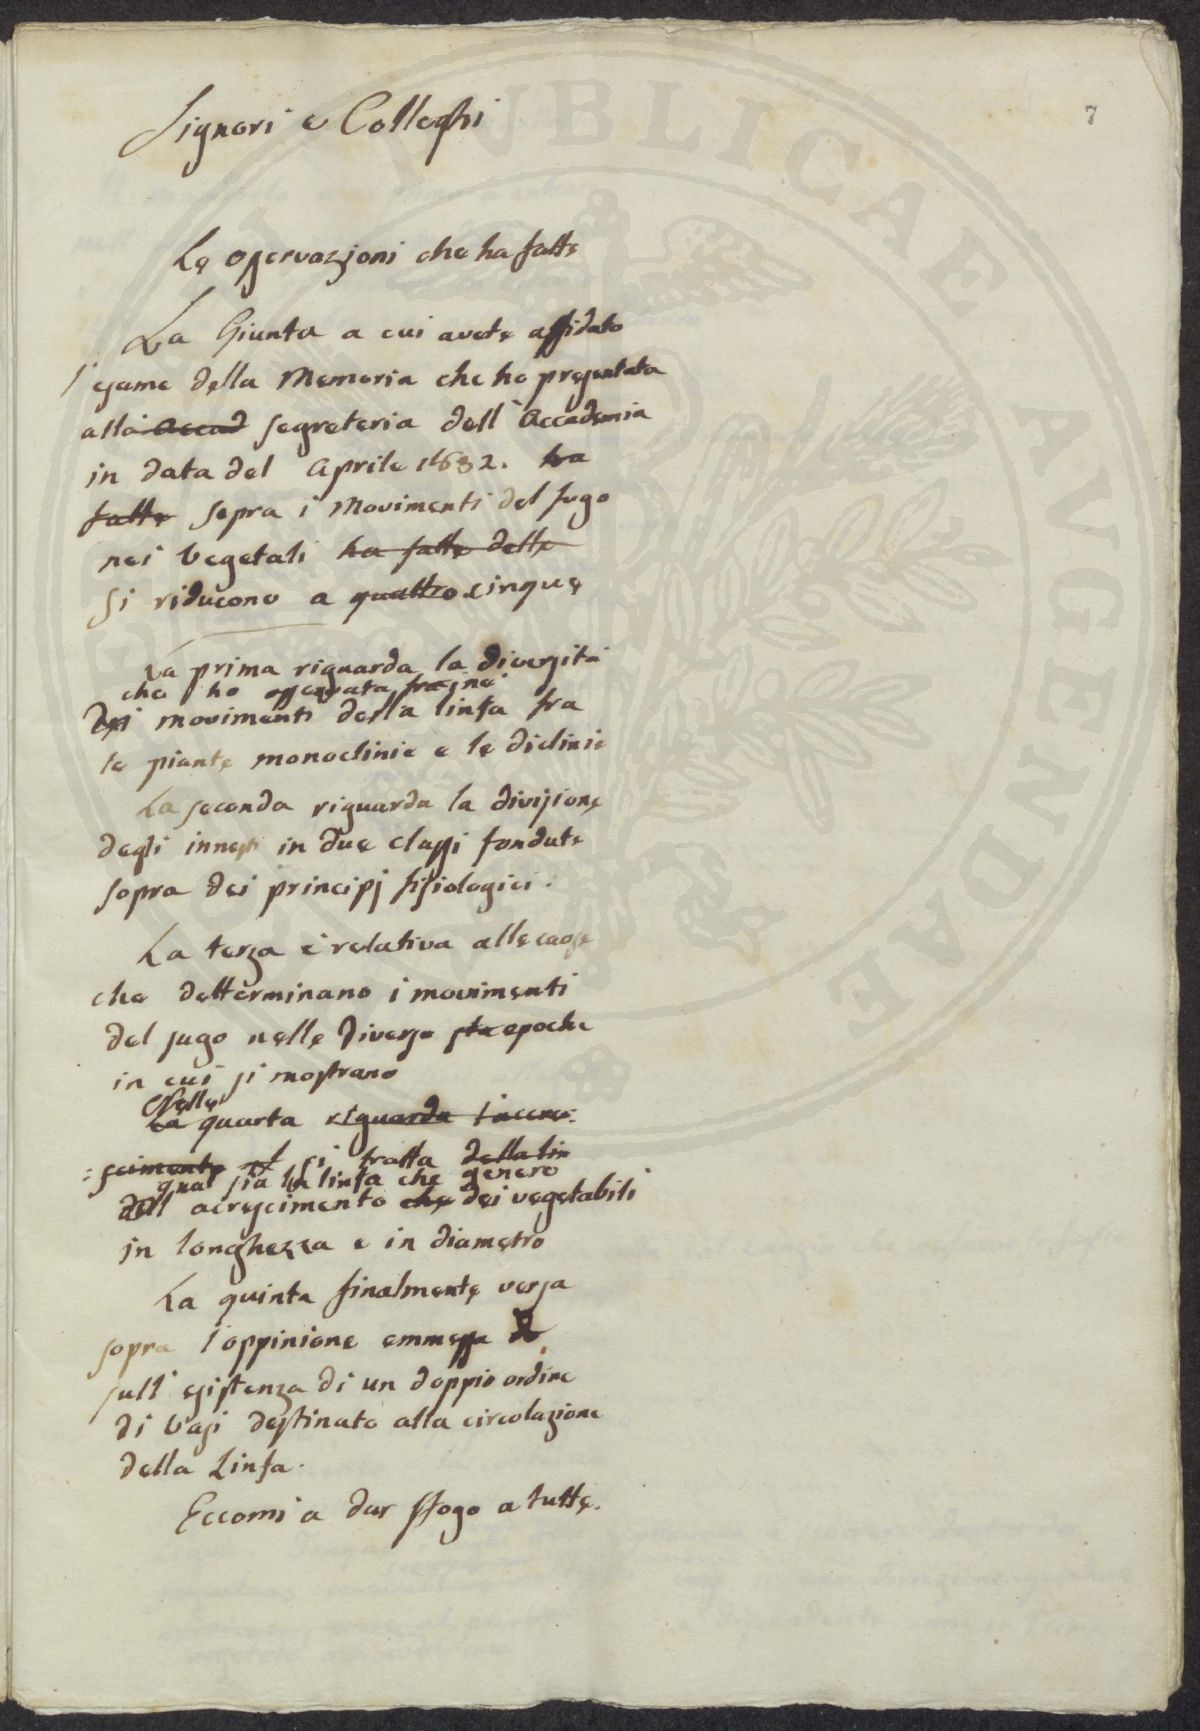 7
Signori e Colleghi
Le osservazioni che ha fatte
La Giunta a cui avete affidato
l'esame della Memoria che ho presentata
alla accad segreteria dell'Accademia
in data del Aprile 1832. ha
fatte sopra i Movimenti del sugo
nei Vegetali ha fatte dette
si riducono a quattro cinque
La prima riguarda la diversità
che ho osservata fra ne
Dei movimenti della linfa fra
le piante monoclinie e le diclinie
La seconda riguarda la divisione
degli innesti in due classi fondate
sopra dei principj fisiologici.
La terza è relativa alle cause
che detterminano i movimenti
del sugo nelle diverse sta epoche
in cui si mostrano
Nella
La quarta riguarda l'accre:
:scimento si tratta della lin
qual sia la linfa che genero
dell acrescimento che dei vegetabili
in longhezza e in diametro
La quinta finalmente versa
sopra l'oppinione emmessa
sull'esistenza di un doppio ordine
di Vasi destinato alla circolazione
della Linfa.
Eccomi a dar sfogo a tutte.